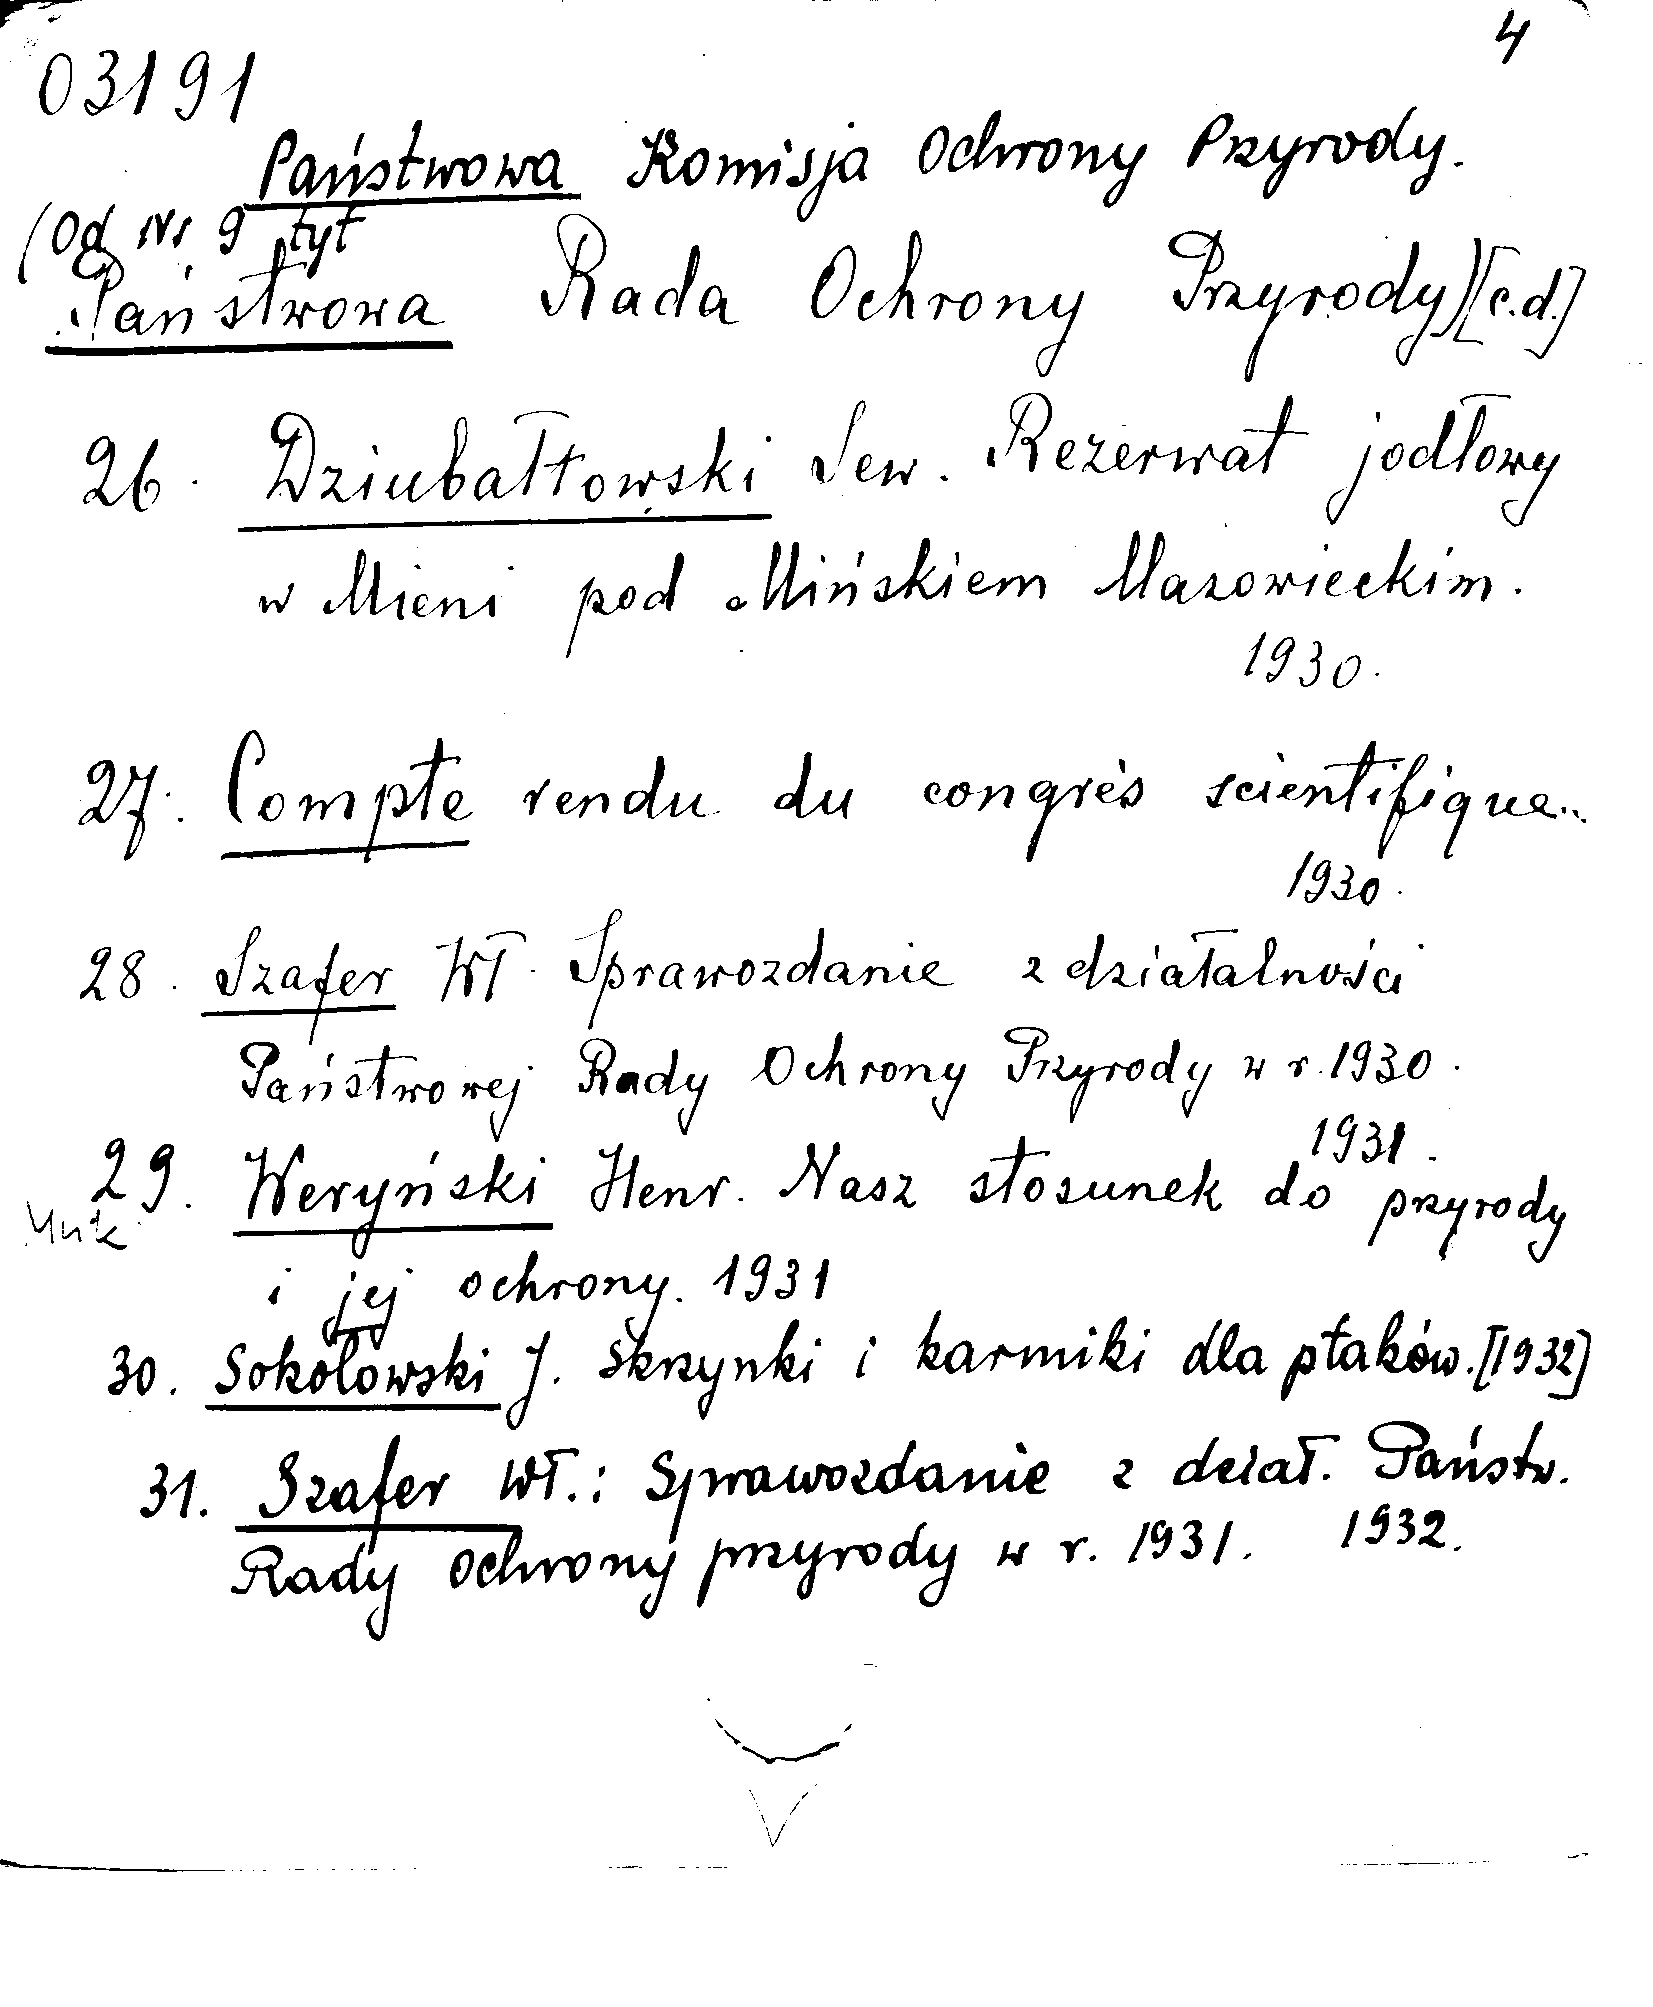 4
03191
Państwowa Komisja Ochrony Przyrody.
(Od Nr 9 tyt
Państwowa Rada Ochrony Przyrody)[c.d.]
26. Dziubałtowski Sew. Rezerwat jodłowy
w Mieni pod Mińskiem Mazowieckim.
1930.
27. Compte rendu du congrès scientifique...
1930.
28. Szafer Wł. Sprawozdanie z działalności
Państwowej Rady Ochrony Przyrody w r. 1930.
1931.
29. Weryński Henr. Nasz stosunek do przyrody
i jej ochrony. 1931
30. Sokołowski J. Skrzynki i karmiki dla ptaków. [1932]
31. Szafer Wł.: Sprawozdanie z dział. Państw.
Rady ochrony przyrody w r. 1931. 1932.